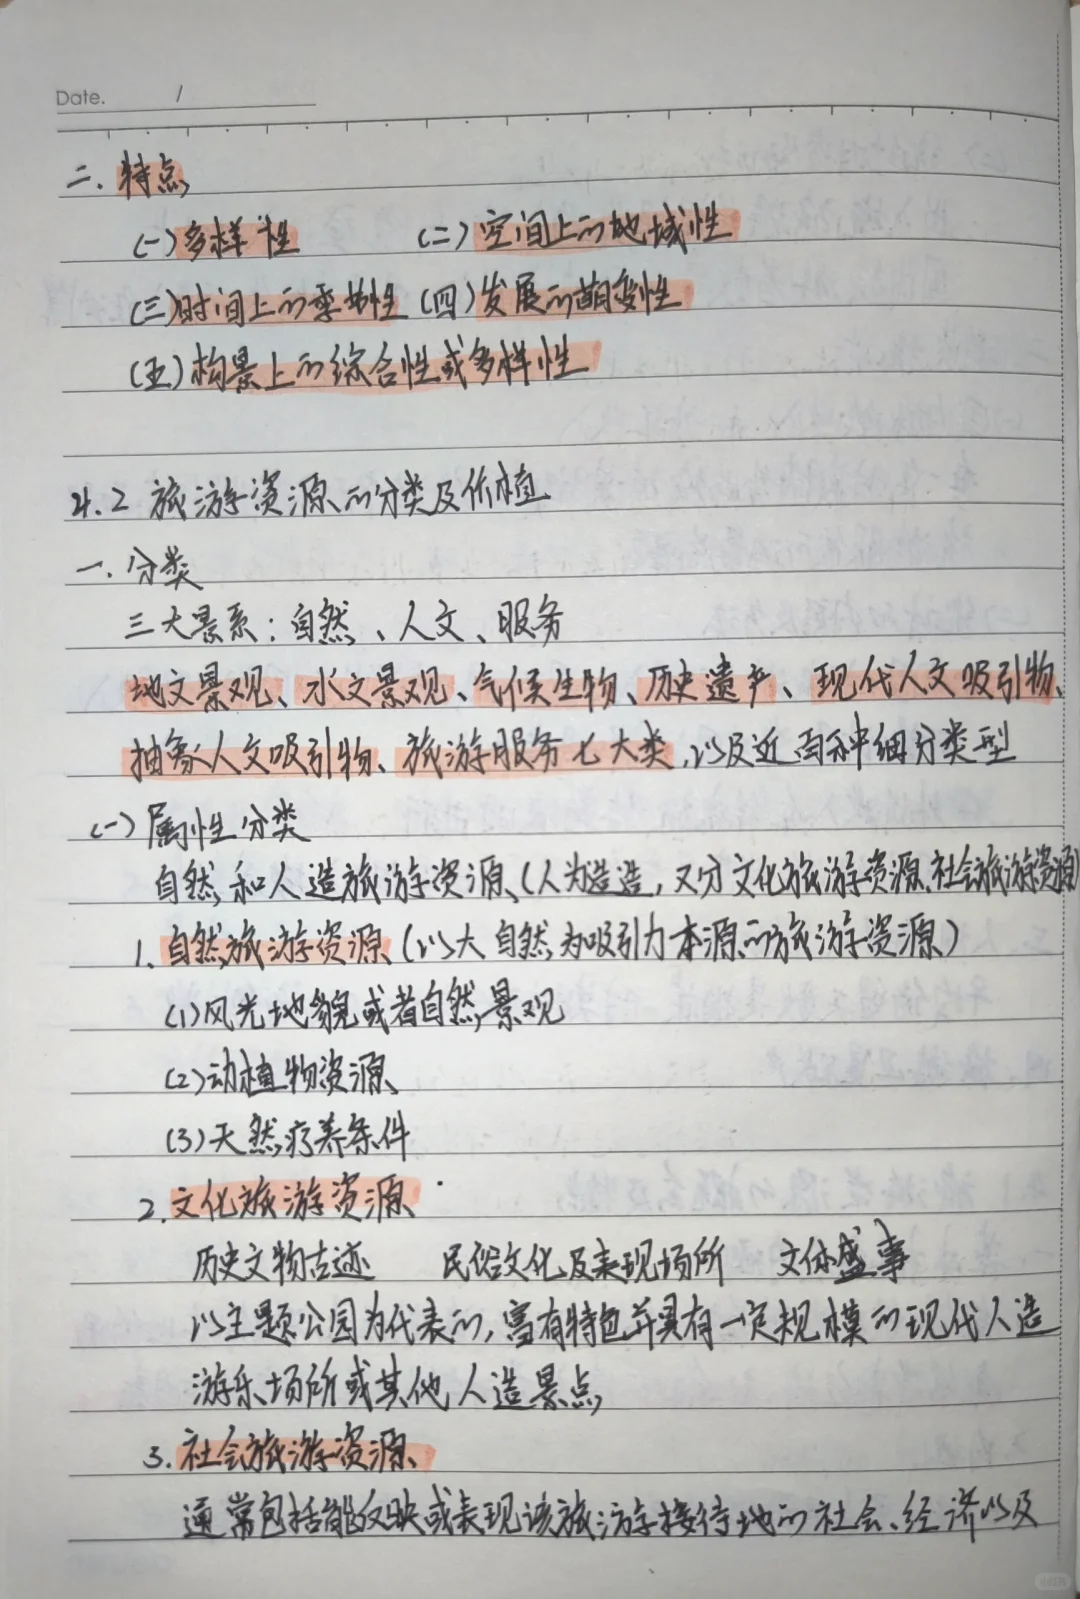 Date. /
二.特点
(一)多样性 (二)空间上的地域性
(三)时间上的季节性 (四)发展的萌变性
(五)构景上的综合性或多样性
4.2 旅游资源的分类及价值
一.分类
三大景系:自然、人文、服务
地文景观、水文景观、气候生物、历史遗产、现代人文吸引物、
抽象人文吸引物、旅游服务七大类,以及近百种细分类型
(一)属性分类
自然和人造旅游资源(人为造造,又分文化旅游资源、社会旅游资源)
1.自然旅游资源(以大自然为吸引力本源的旅游资源)
(1)风光地貌或者自然景观
(2)动植物资源
(3)天然疗养条件
2.文化旅游资源
历史文物古迹 民俗文化及表现场所 文体盛事
以主题公园为代表的,富有特色并具有一定规模的现代人造
游乐场所或其他人造景点
3.社会旅游资源
通常包括能反映或表现该旅游接待地的社会、经济以及